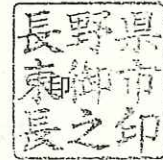 長野県
東印御市
長之印